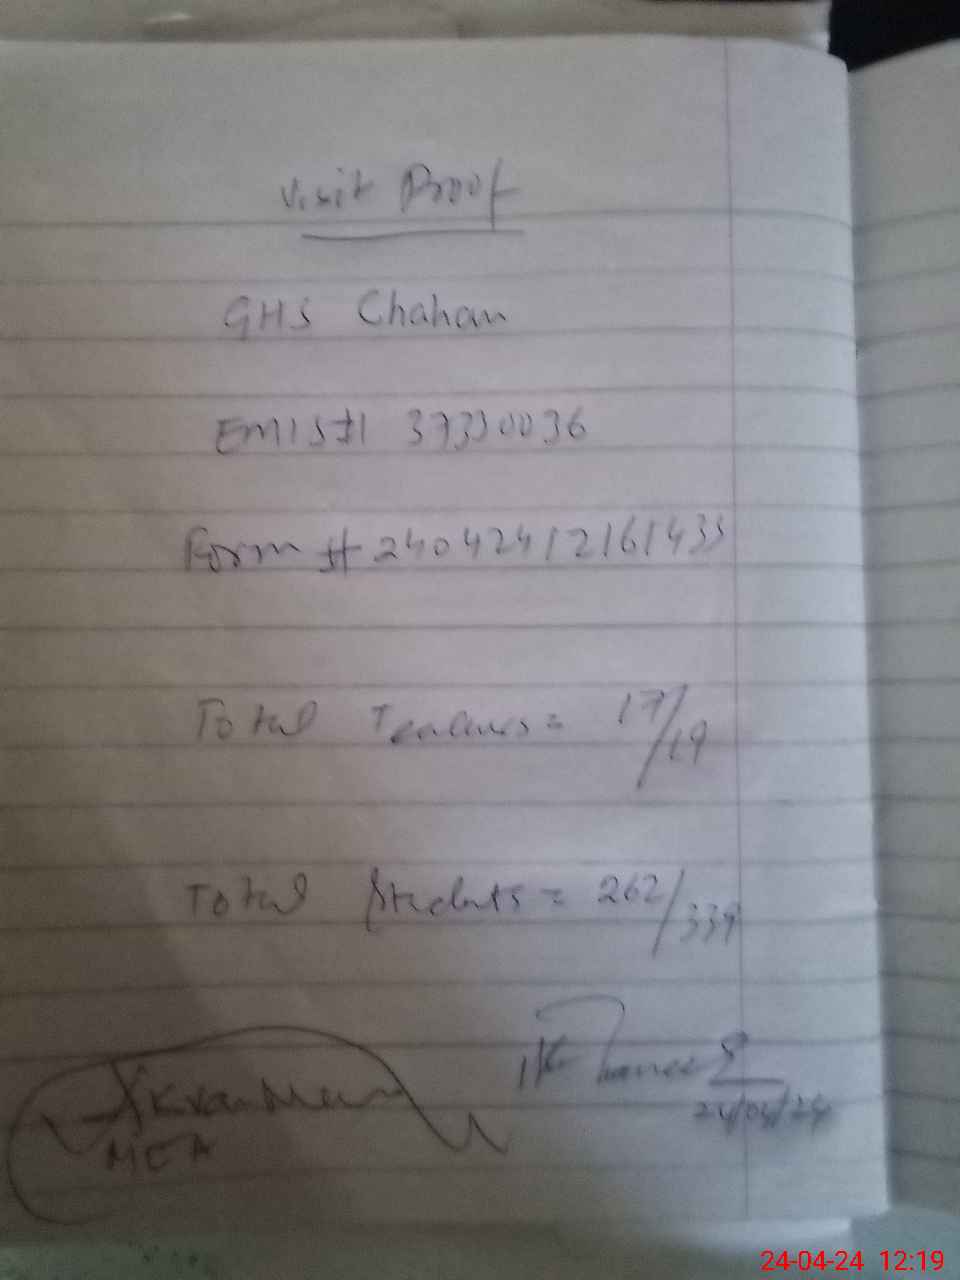 Visit Proof
GHS Chahan
EMIS# 37330036
Form # 24042412161433
Total Teachers = 17/19
Total Students = 262/339
MEA
24/04/24
24-04-24 12:19